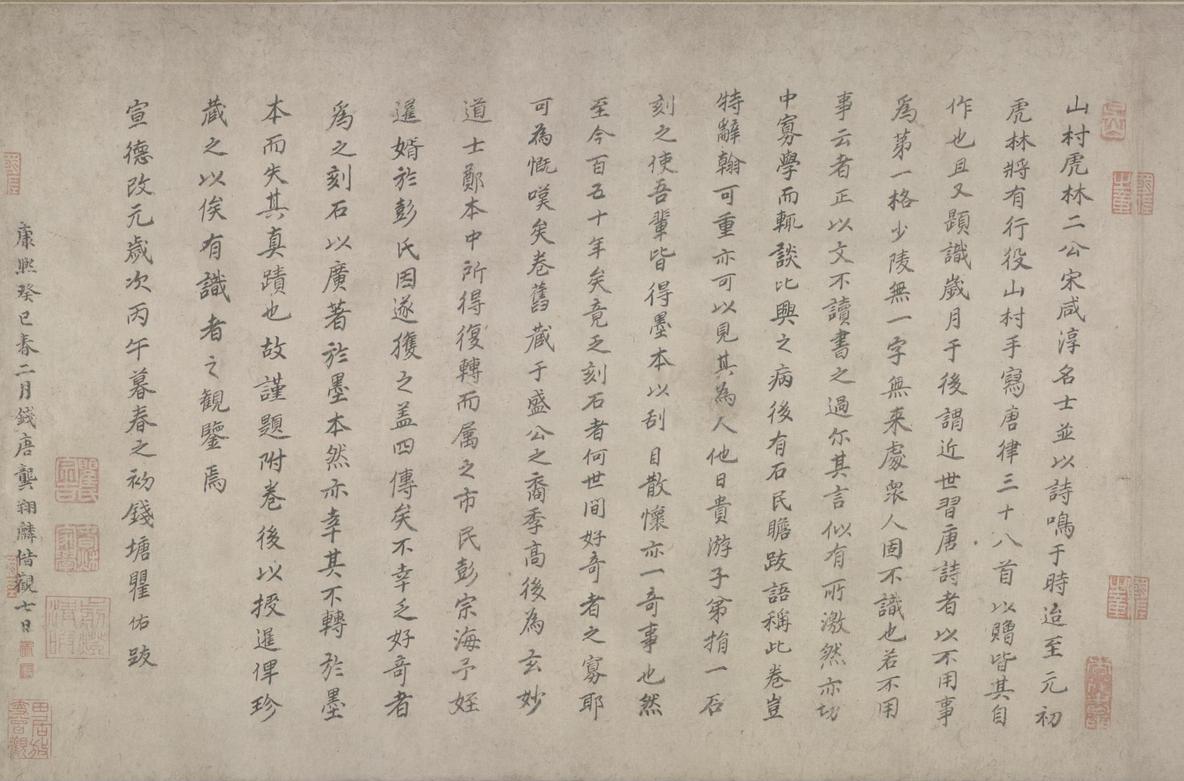 山村虎林二公宋咸淳名士並以詩鳴于時迨至元初
虎林將有行役山村手寫唐律三十八首以贈皆其自
作也且又題識歲月于後謂近世習唐詩者以不用事
為第一格少陵無一字無来處衆人固不識也若不用
事云者正以文不讀書之過尔其言似有所激然亦切
中寡學而輒談比興之病後有石民瞻跋語稱此卷豈
特辭翰可重亦可以見其為人他日貴游子弟捐一石
刻之使吾輩皆得墨本以刮目散懷亦一奇事也然
至今百五十年矣竟乏刻石者何世間好奇者之寡耶
可為慨嘆矣卷舊藏于盛公之裔季高後為玄妙
道士鄭本中所得復轉而屬之市民彭宗海予姪
暹婿於彭氏因遂獲之盖四傳矣不幸乏好奇者
為之刻石以廣著於墨本然亦幸其不轉於墨
本而失其真蹟也故謹題附卷後以授暹俾珍
藏之以俟有識者之観鑒焉
宣德改元歲次丙午暮春之初錢塘瞿佑跋
康熙癸巳春二月錢唐龔翔麟偕觀七日